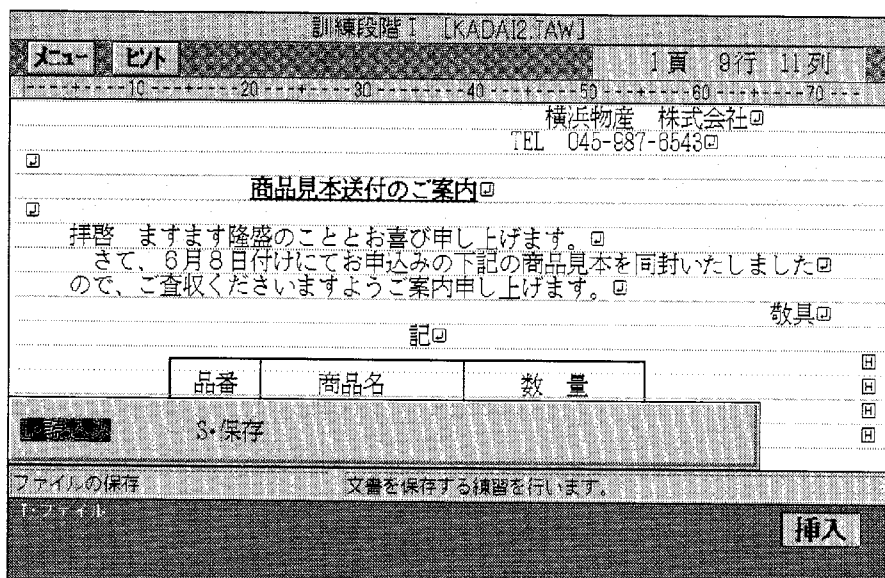 訓練段階Ⅰ [KADAI2.TAW]
メニュー ヒント 1頁 9行 11列
----+----10----+----20----+----30----+----40----+----50----+----60----+----70---
横浜物産 株式会社
TEL 045-987-6543
商品見本送付のご案内
拝啓 ますます隆盛のこととお喜び申し上げます。
さて、6月8日付けにてお申込みの下記の商品見本を同封いたしました
ので、ご査収くださいますようご案内申し上げます。
敬具
記
品番 商品名 数 量
S・保存
ファイルの保存 文書を保存する練習を行います。
T・ファイル
挿入